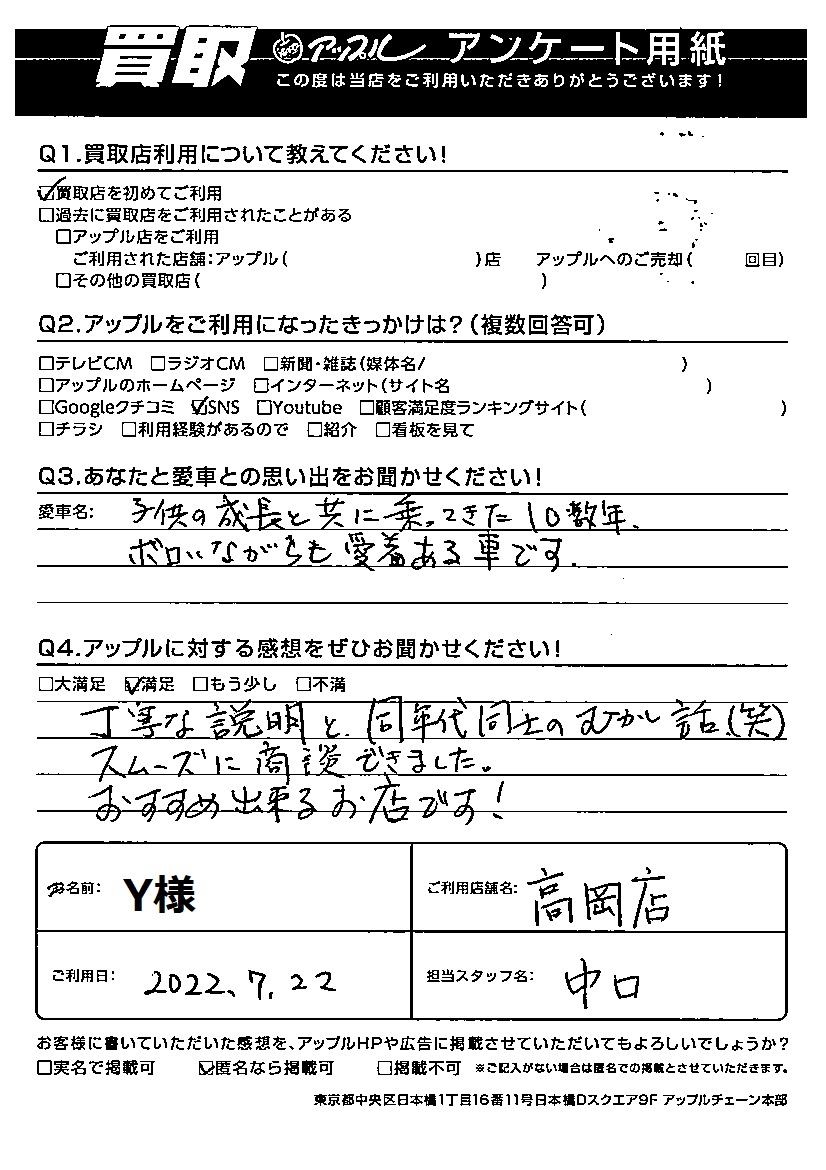 買取 アップル アンケート用紙
この度は当店をご利用いただきありがとうございます!
Q1.買取店利用について教えてください!
☑買取店を初めてご利用
□過去に買取店をご利用されたことがある
□アップル店をご利用
ご利用された店舗:アップル( )店 アップルへのご売却( 回目)
□その他の買取店( )
Q2.アップルをご利用になったきっかけは?(複数回答可)
□テレビCM □ラジオCM □新聞・雑誌(媒体名/ )
□アップルのホームページ □インターネット(サイト名 )
□Googleクチコミ ☑SNS □Youtube □顧客満足度ランキングサイト( )
□チラシ □利用経験があるので □紹介 □看板を見て
Q3.あなたと愛車との思い出をお聞かせください!
愛車名: 子供の成長と共に乗ってきた10数年、
ボロいながらも愛着ある車です。
Q4.アップルに対する感想をぜひお聞かせください!
□大満足 ☑満足 □もう少し □不満
丁寧な説明と、同年代同士のむかし話、(笑)
スムーズに商談できました。
おすすめ出来るお店です!
お名前: Y様 ご利用店舗名: 高岡店
ご利用日: 2022、7、22 担当スタッフ名: 中口
お客様に書いていただいた感想を、アップルHPや広告に掲載させていただいてもよろしいでしょうか?
□実名で掲載可 ☑匿名なら掲載可 □掲載不可 ※ご記入がない場合は匿名での掲載とさせていただきます。
東京都中央区日本橋1丁目16番11号日本橋Dスクエア9F アップルチェーン本部